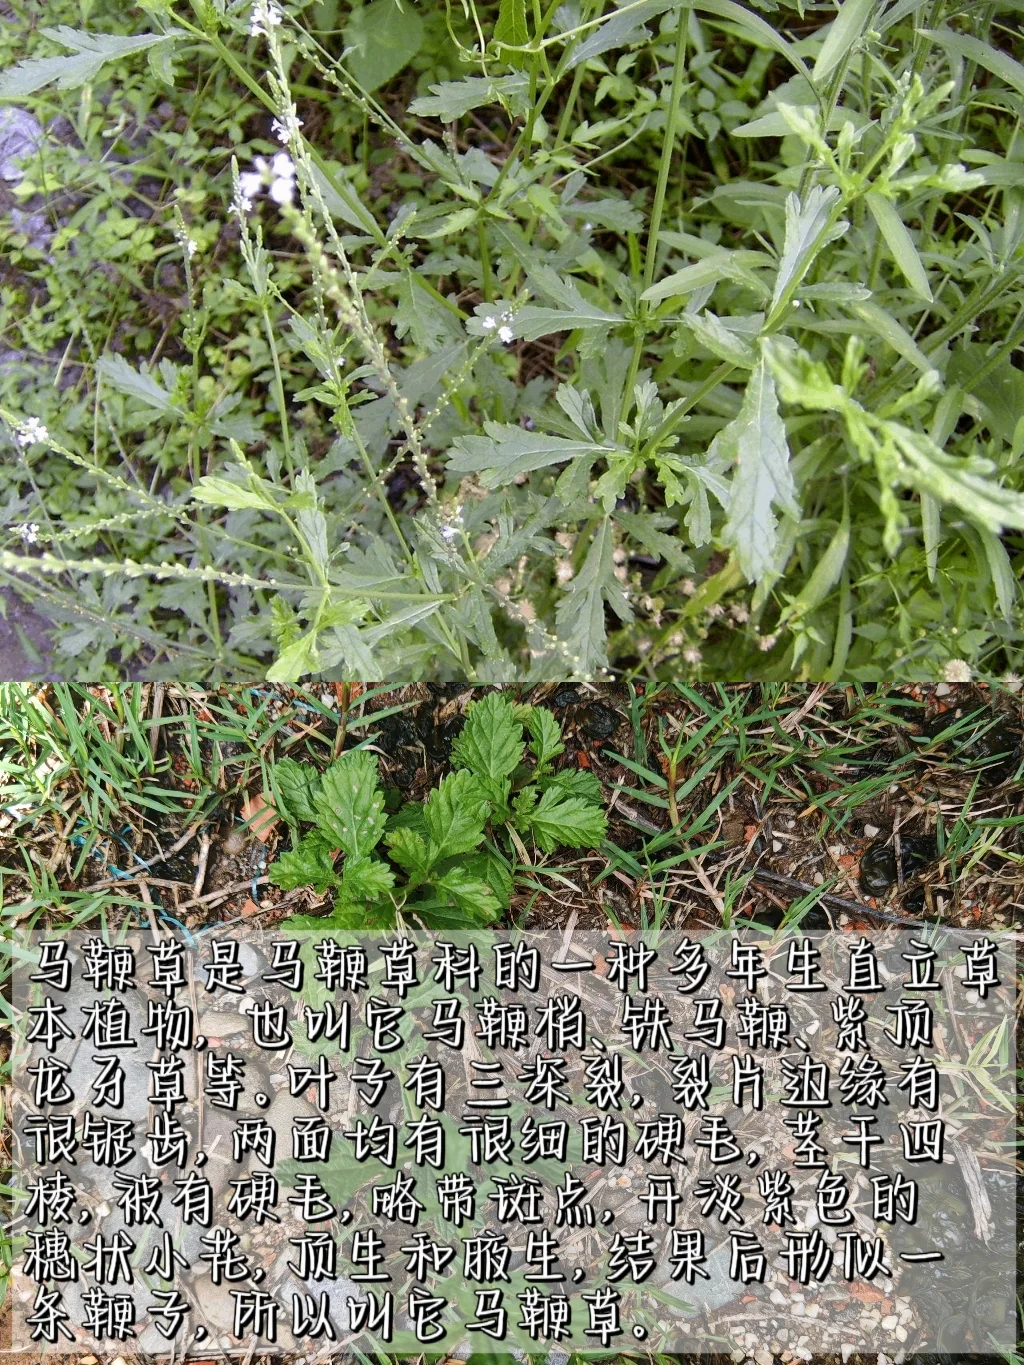 马鞭草是马鞭草科的一种多年生直立草
本植物，也叫它马鞭梢、铁马鞭、紫顶
龙牙草等。叶子有三深裂，裂片边缘有
很锯齿，两面均有很细的硬毛，茎干四
棱，被有硬毛，略带斑点，开淡紫色的
穗状小花，顶生和腋生，结果后形似一
条鞭子，所以叫它马鞭草。